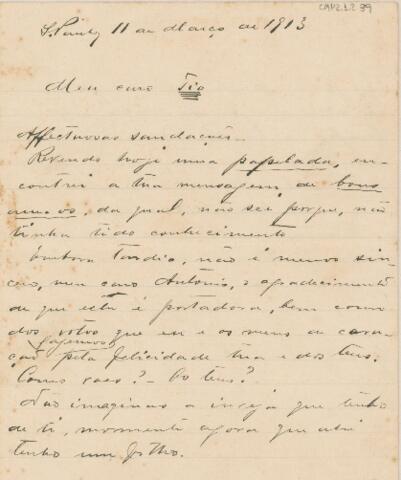 S. Paulo, 11 de Março de 1913
Meu caro Tio
Affectuosas saudações.
Revendo hoje uma papelada, en-
contrei a tua mensagem de bons
annos, da qual, não sei porque, não
tinha tido conhecimento.
Embora tardio, não é menos sin-
cero, meu caro Antonio, o agradecimento
de que esta é portadora, bem como
dos votos que eu e os meus de cora-
fazemos
ção pela felicidade tua e dos teus.
Como vaes? - Os teus?
Não imaginas a inveja que tenho
de ti, mormente agora que
tenho um filho.